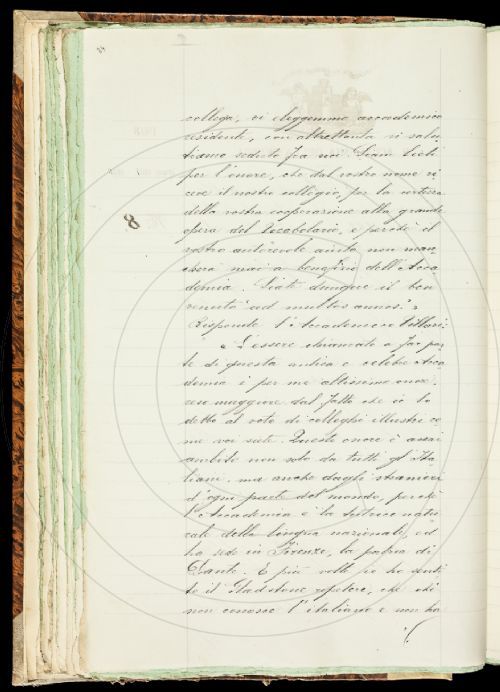 collega, vi eleggemmo accademico
residente, con altrettanta vi salu
tiamo seduto fra noi. Siam lieti
per l'onore, che dal vostro nome ri
ceve il nostro collegio, per la certezza
della vostra cooperazione alla grande
opera del Vocabolario, e perchè il
vostro autorevole aiuto non man-
cherà mai a benefizio dell'Acca
demia. Siate dunque il ben
venuto "ad multos annos."
Risponde l'Accademico Villari:
"L'essere chiamato a far par
te di questa antica e celebre Acca
demia è per me altissimo onore,
reso maggiore dal fatto che io lo
debbo al voto di colleghi illustri co
me voi siete. Questo onore è assai
ambito non solo da tutti gl'Ita
liani, ma anche dagli stranieri
d'ogni parte del mondo, perchè
l'Accademia è la tutrice natu
rale della lingua nazionale, ed
ha sede in Firenze, la patria di
Dante. E più volte io ho senti
to il Gladstone ripetere, che chi
non conosce l'italiano e non ha
8